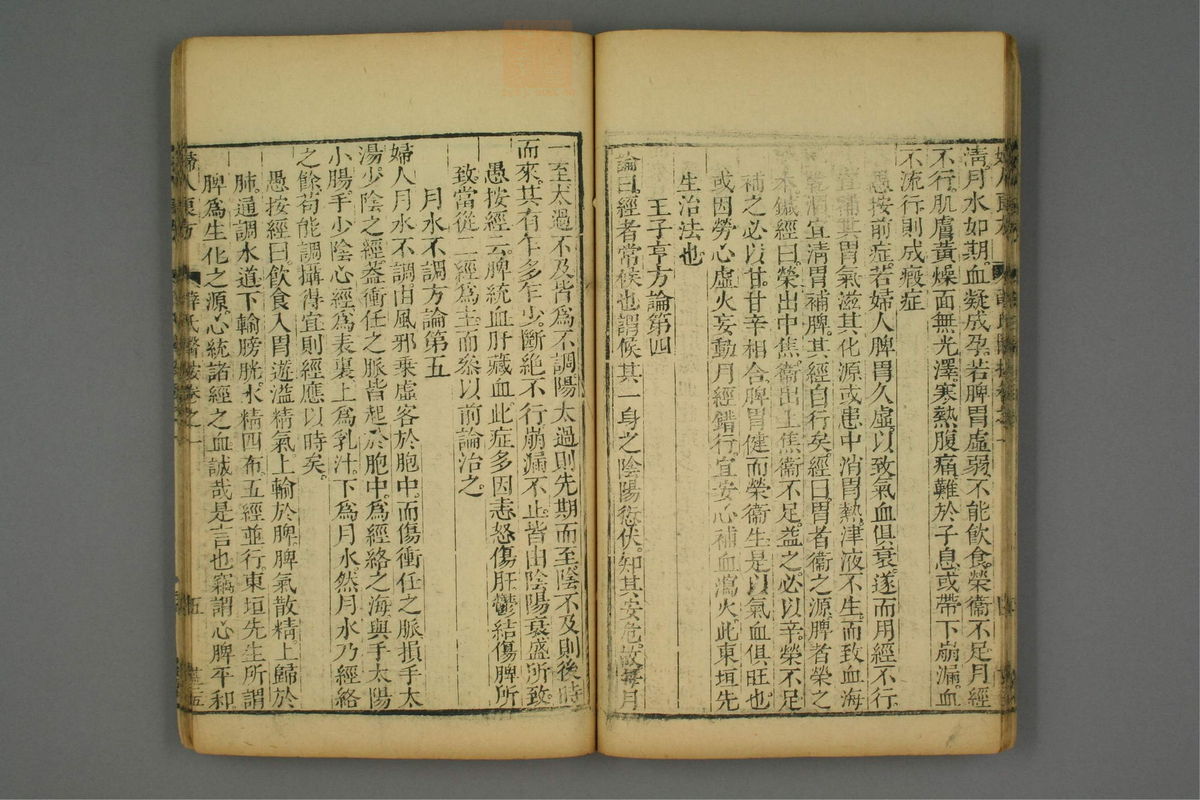 清月水如期血凝成孕若脾胃虛弱不能飲食榮衛不足月經
不行肌膚黃燥面無光澤寒熱腹痛難於子息或帶下崩漏血
不流行則成瘕症
愚按前症若婦人脾胃久虛以致氣血俱衰遂而用經不行
宜補其胃氣滋其化源或患中消胃熱津液不生而致血海
乾涸宜清胃補脾其經自行矣經曰胃者衛之源脾者榮之
本鍼經曰榮出中焦衛出上焦衛不足益之必以辛榮不足
補之必以甘甘辛相合脾胃健而榮衛生是以氣血俱旺也
或因勞心虛火妄動月經錯行宜安心補血瀉火此東垣先
生治法也
王子亨方論第四
論曰經者常候也謂候其一身之陰陽愆伏知其安危故每月
一至太過不及皆為不調陽太過則先期而至陰不及則後時
而來其有乍多乍少斷絕不行崩漏不止皆由陰陽衰盛所致
愚按經云脾統血肝藏血此症多因恚怒傷肝鬱結傷脾所
致當從二經爲主而叅以前論治之
月水不調方論第五
婦人月水不調由風邪乘虛客於胞中而傷衝任之脈損手太
陽少陰之經葢衝任之脈皆起於胞中爲經絡之海與手太陽
小腸手少陰心經爲表裏上爲乳汁下爲月水然月水乃經絡
之餘苟能調攝得宜則經應以時矣
愚按經曰飲食入胃遊溢精氣上輸於脾脾氣散精上歸於
肺通調水道下輸膀胱水精四布五經並行東垣先生所謂
脾爲生化之源心統諸經之血誠哉是言也竊謂心脾平和
婦人良方
薛氏醫按卷之一
五